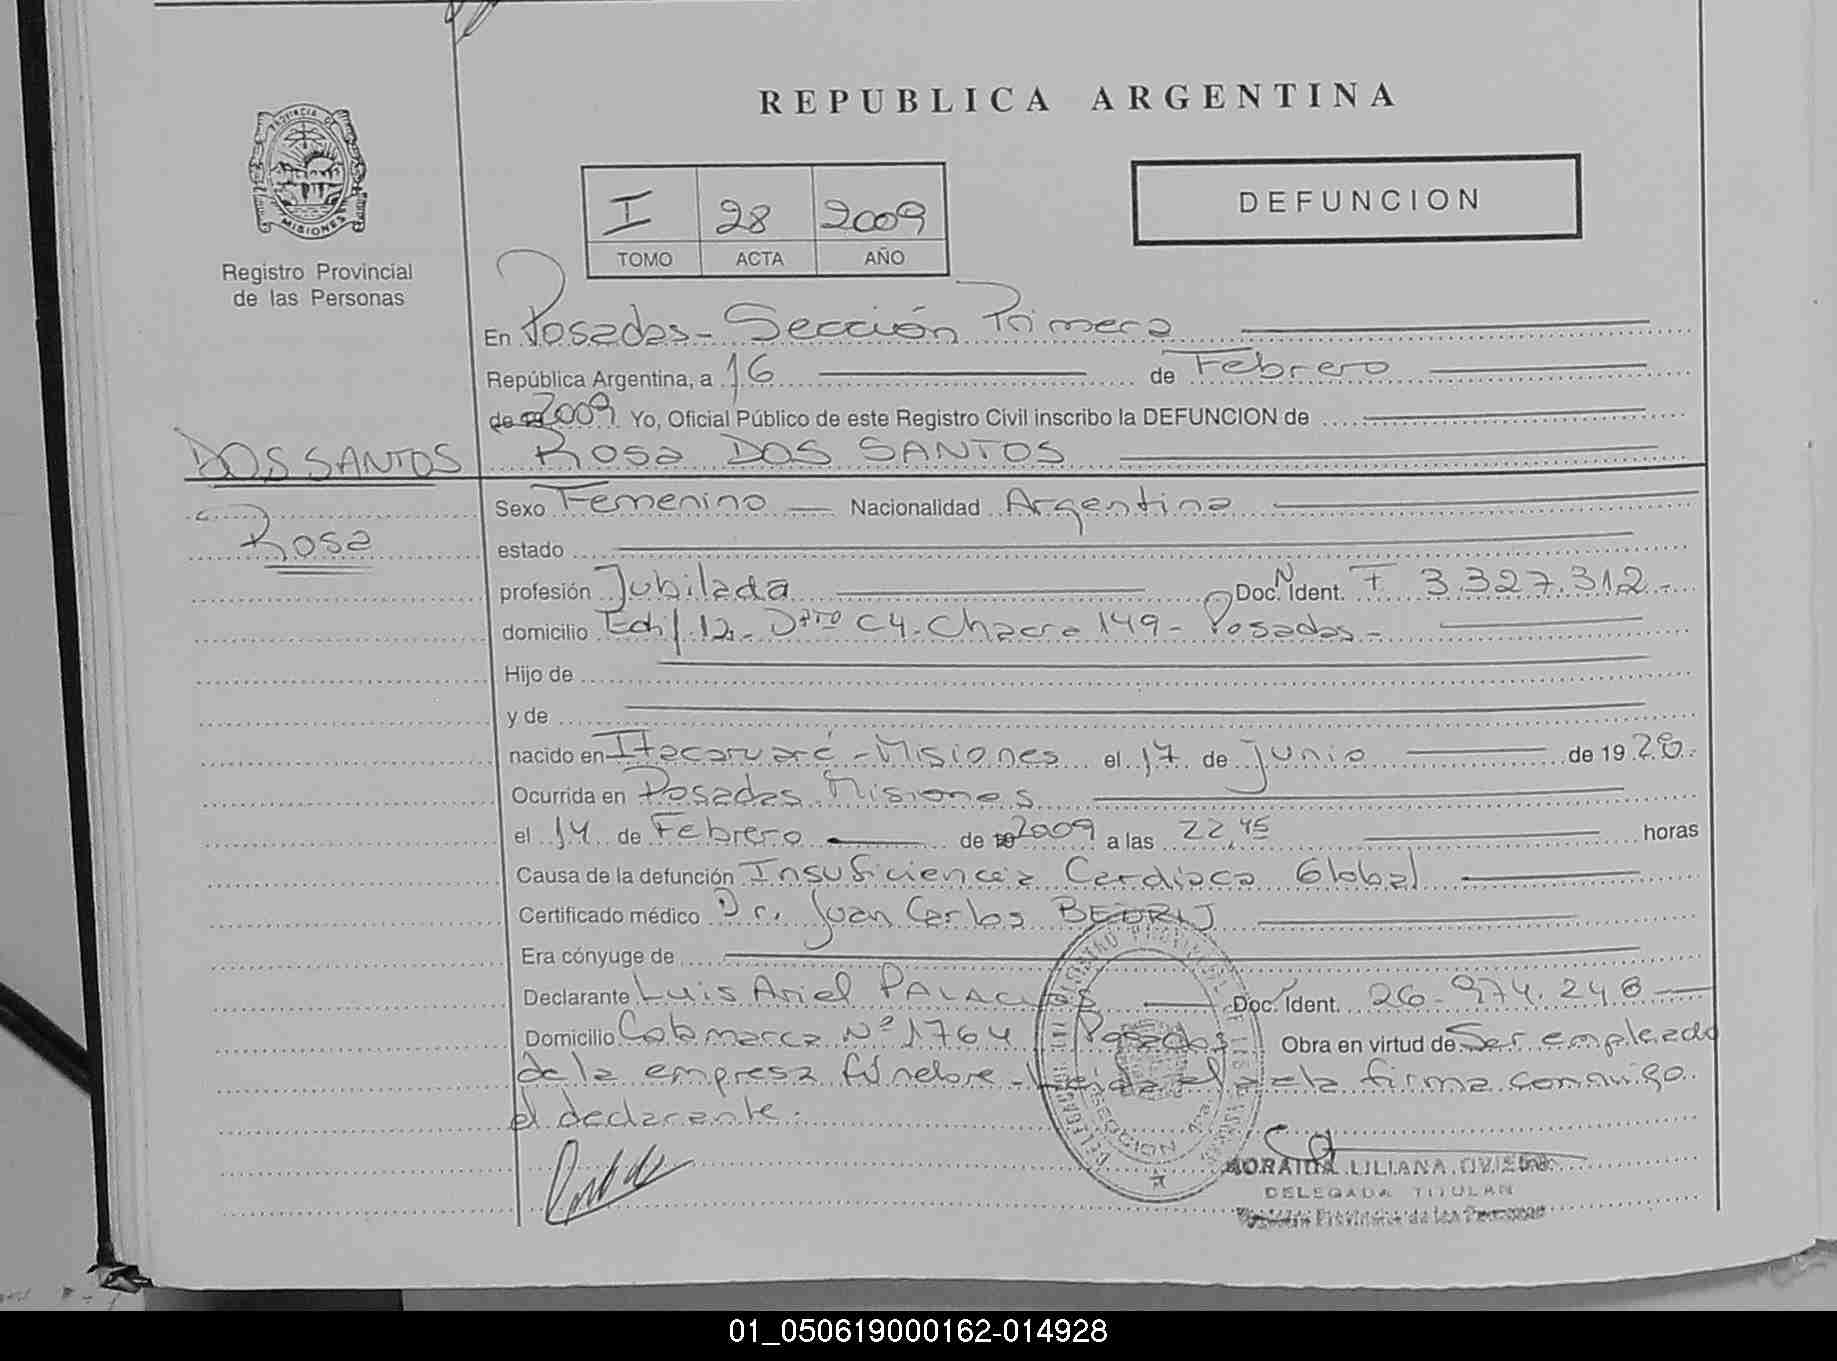 REPUBLICA ARGENTINA
PROVINCIA D
MISIONES
Registro Provincial
de las Personas
I 28 2009
TOMO ACTA AÑO
DEFUNCION
En Posadas - Sección Primera
República Argentina, a 16 de Febrero
de 2009 Yo, Oficial Público de este Registro Civil inscribo la DEFUNCION de
DOS SANTOS Rosa DOS SANTOS
Sexo Femenino Nacionalidad Argentina
Rosa
estado
profesión Jubilada Doc. N Ident. F 3.327.312.-
domicilio Edif. 12. Dpto C4. Chacra 149 - Posadas -
Hijo de
y de
nacido en Itacaruaré - Misiones el 17 de Junio de 19 28.
Ocurrida en Posadas Misiones
el 14 de Febrero de 2009 a las 22,45 horas
Causa de la defunción Insuficiencia Cardiaca Global
Certificado médico Dr. Juan Carlos BEDRIJ
Era cónyuge de
Declarante Luis Ariel PALACIOS Doc. Ident. 26.974.248
Domicilio Catamarca Nº 1764 Posadas Obra en virtud de Ser empleado
de la empresa fúnebre - Leida el acta firma conmigo
el declarante.
SECCION 1ra.
MORAIMA LILIANA OVIEDO
DELEGADA TITULAR
Registro Provincial de las Personas
01_050619000162-014928